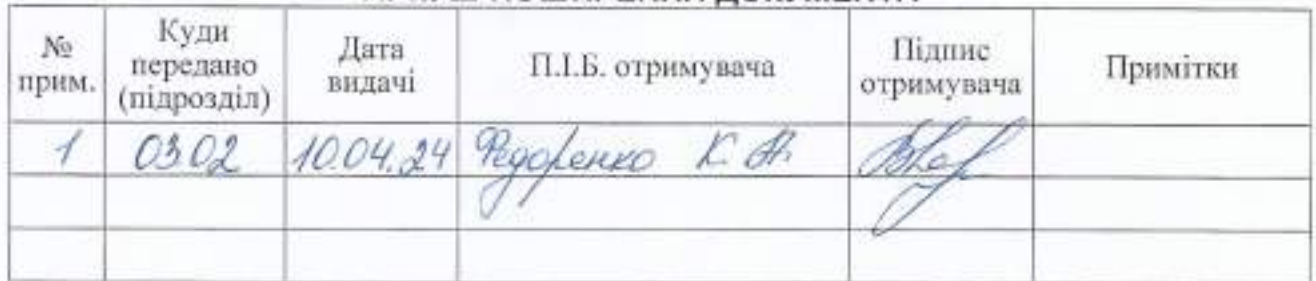 № прим. Куди передано (підрозділ) Дата видачі П.І.Б. отримувача Підпис отримувача Примітки
1 03.02 10.04.24 Федоренко К.